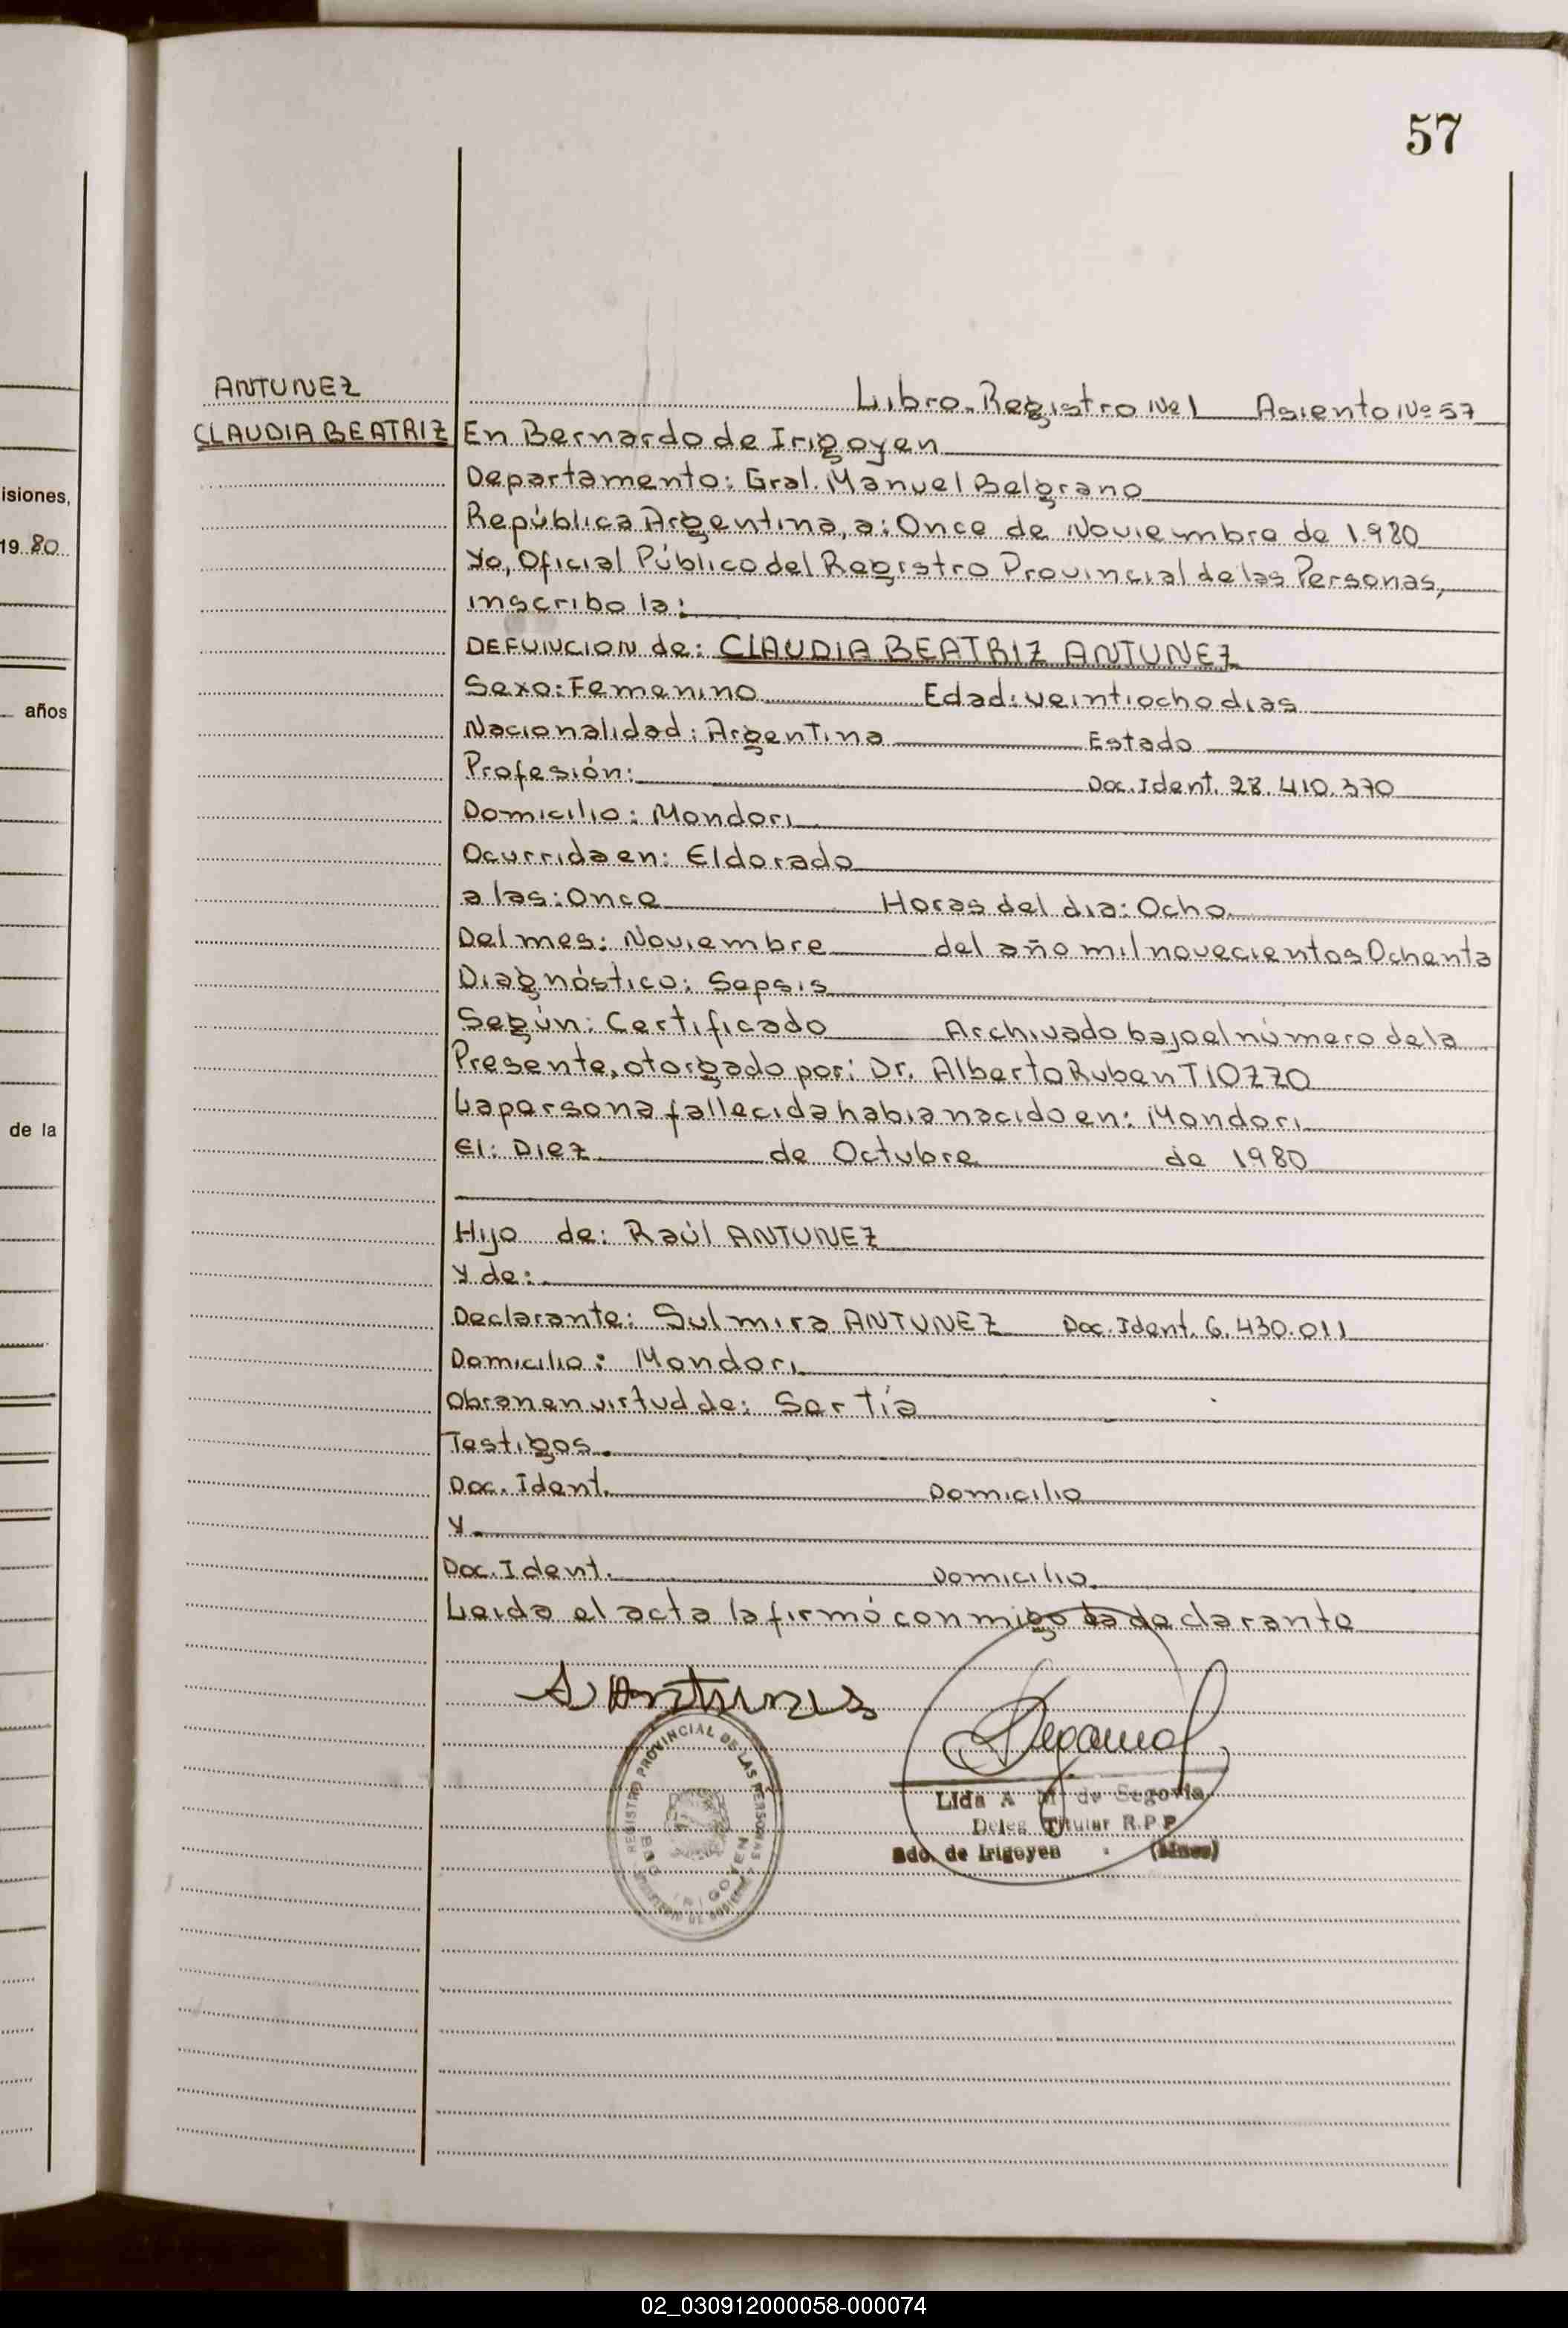 57
ANTUNEZ
CLAUDIA BEATRIZ
Libro-Registro Nº 1 Asiento Nº 57
En Bernardo de Irigoyen
Departamento: Gral. Manuel Belgrano
República Argentina, a: Once de Noviembre de 1980
Yo, Oficial Público del Registro Provincial de las Personas,
inscribo la:
DEFUNCION de: CLAUDIA BEATRIZ ANTUNEZ
Sexo: Femenino Edad: veintiocho dias
Nacionalidad: Argentina Estado
Profesión: Doc. Ident. 28.410.370
Domicilio: Mondori
Ocurrida en: Eldorado
a las: Once Horas del dia: Ocho
Del mes: Noviembre del año mil novecientos Ochenta
Diagnóstico: Sepsis
Según: Certificado Archivado bajo el número de la
Presente, otorgado por: Dr. Alberto Ruben TIOZZO
La persona fallecida habia nacido en: Mondori
El: Diez de Octubre de 1980
Hijo de: Raúl ANTUNEZ
Y de:
Declarante: Sulmira ANTUNEZ Doc. Ident. 6.430.011
Domicilio: Mondori
Obran en virtud de: Ser Tía
Testigos
Doc. Ident. Domicilio
Y
Doc. Ident. Domicilio
Leida el acta la firmó conmigo la declarante
S Antunes
REGISTRO PROVINCIAL DE LAS PERSONAS
BDO IRIGOYEN
Lida A M de Segovia
Deleg Titular R.P.P
Bdo. de Irigoyen (Mnes)
isiones,
19 80
años
de la
02_030912000058-000074